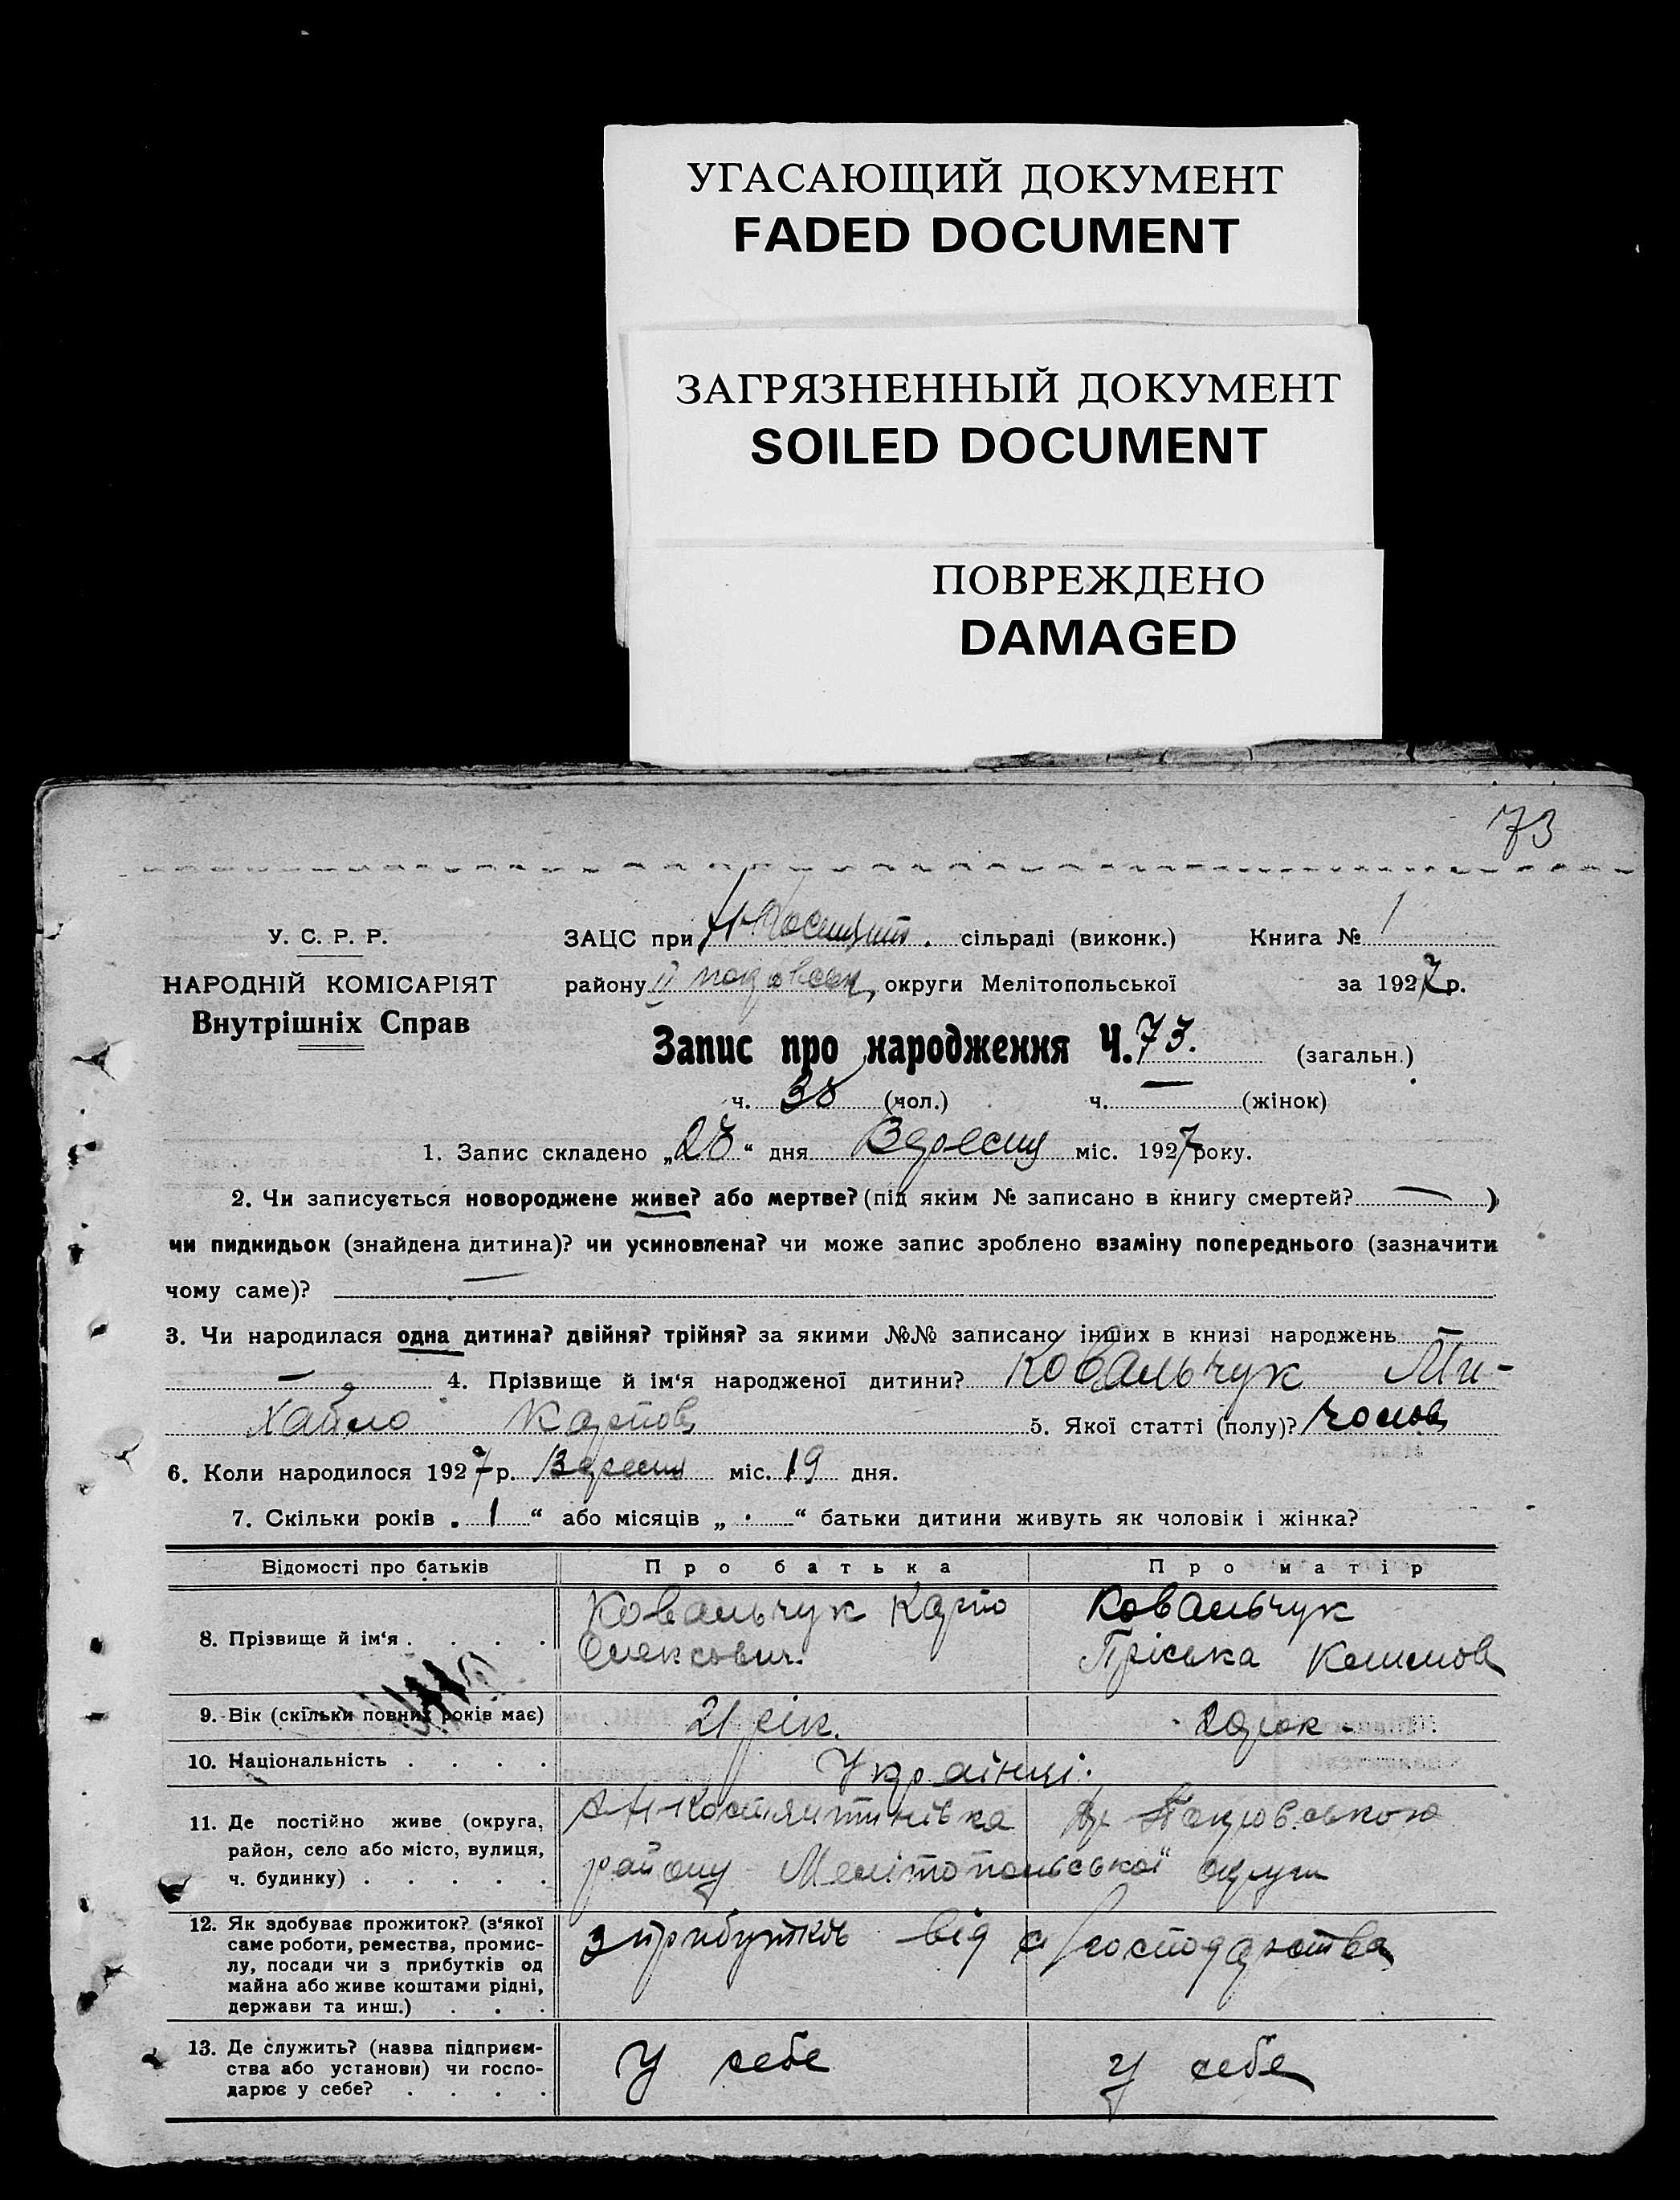 УГАСАЮЩИЙ ДОКУМЕНТ
FADED DOCUMENT
ЗАГРЯЗНЕННЫЙ ДОКУМЕНТ
SOILED DOCUMENT
ПОВРЕЖДЕНО
DAMAGED
73
У. С. Р. Р.
НАРОДНІЙ КОМІСАРІЯТ
Внутрішніх Справ
ЗАЦС при сільраді (виконк.) Книга № 1
району округи Мелітопольської за 1927 р.
Запис про народження Ч. 73. (загальн.)
ч. 38 (чол.) ч. — (жінок)
1. Запис складено „28“ дня Вересня міс. 1927 року.
2. Чи записується новороджене живе? або мертве? (під яким № записано в книгу смертей? — )
чи пидкидьок (знайдена дитина)? чи усиновлена? чи може запис зроблено взаміну попереднього (зазначити
чому саме)? —
3. Чи народилася одна дитина? двійня? трійня? за якими №№ записано інших в книзі народжень —
— 4. Прізвище й ім‘я народженої дитини? Ковальчук Ми-
хайло Карпов 5. Якої статті (полу)? чолов
6. Коли народилося 1927 р. Вересня міс. 19 дня.
7. Скільки років „ 1 “ або місяців „ · “ батьки дитини живуть як чоловік і жінка?
Відомості про батьків Про батька Про матір
8. Прізвище й ім‘я . . . .
Ковальчук Карпо
Олексович.
Ковальчук
Пріська Климов
9. Вік (скільки повних років має) 21 рік.
10. Національність . . . . Українці.
11. Де постійно живе (округа,
район, село або місто, вулиця,
ч. будинку) . . . . .
району Мелітопольської округи
12. Як здобуває прожиток? (з‘якої
саме роботи, ремества, промис-
лу, посади чи з прибутків од
майна або живе коштами рідні,
держави та инш.) . . .
з прибутків від с/господарства
13. Де служить? (назва підприєм-
ства або установи) чи госпо-
дарює у себе? . . . .
У себе
у себе